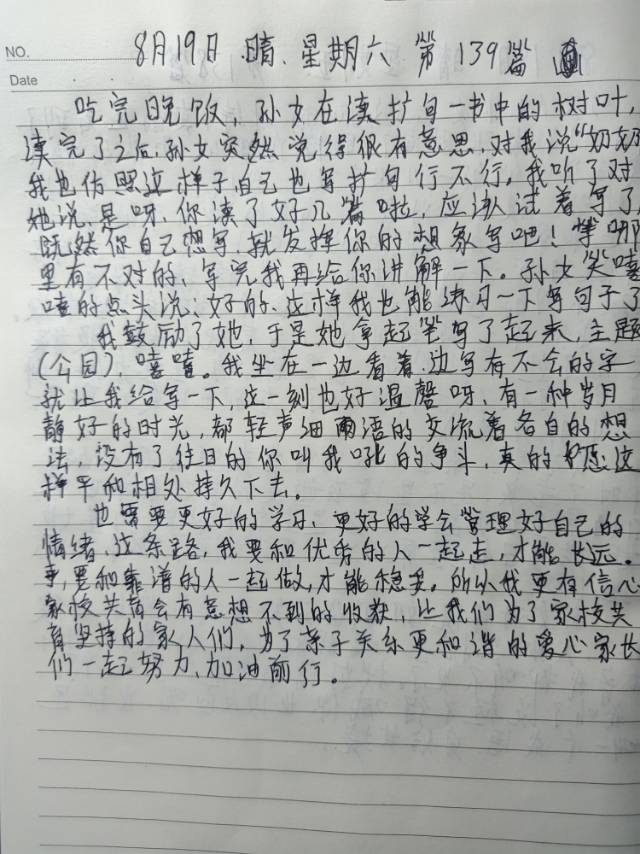 NO.
8月19日.晴.星期六 第139篇
Date
吃完晚饭,孙女在读扩句一书中的树叶,
读完了之后孙女突然说得很有意思.对我说"奶奶
我也仿照这样子自己也写扩句行不行,我听了对
她说,是呀,你读了好几篇啦,应该试着写了
既然你自己想写,就发挥你的想象写吧!等哪
里有不对的、写完我再给你讲解一下。孙女笑嘻
嘻的点头说:好的,这样我也能练习一下写句子了
我鼓励了她,于是她拿起笔写了起来,主题
(公园),嘻嘻。我坐在一边看着,边写有不会的字
就让我给写一下,这一刻也好温馨呀,有一种岁月
静好的时光,都轻声细雨语的交流着各自的想
法,没有了往日的你叫我吼的争斗,真的好愿这
样平和相处持久下去。
也需要更好的学习、更好的学会管理好自己的
情绪、这条路,我要和优秀的人一起走,才能长远。
事,要和靠谱的人一起做,才能稳妥。所以我更有信心
家校共育会有意想不到的收获,让我们为了家校共
育坚持的家人们,为了亲子关系更和谐的爱心家长
们一起努力、加油前行。